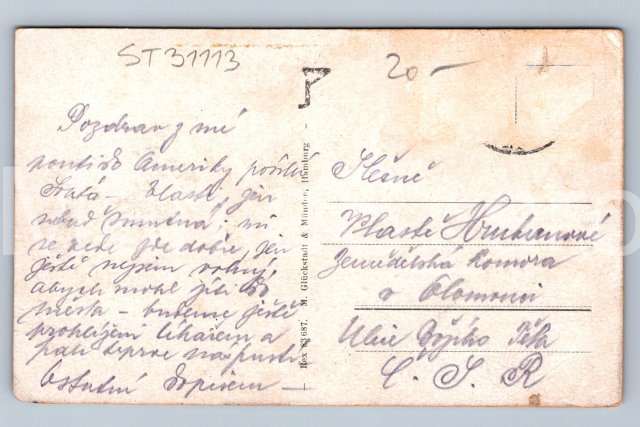 ST31113
20 —
Pozdrav z mé
pouti do Ameriky posílá
Zlatá — Vlasti jen
nebuď smutná, mi
se vede zde dobře, jen
ještě nejsem volný
abych mohl jíti do
města — budeme ještě
prohlíženi lékařem a
pak teprve
Ostatní dopisem —
Rox 83687. M. Glückstadt & Münden, Hamburg
Slečně
Vlastě
Zemědělská Komora
v Olomouci
Ulice
Č. S. R